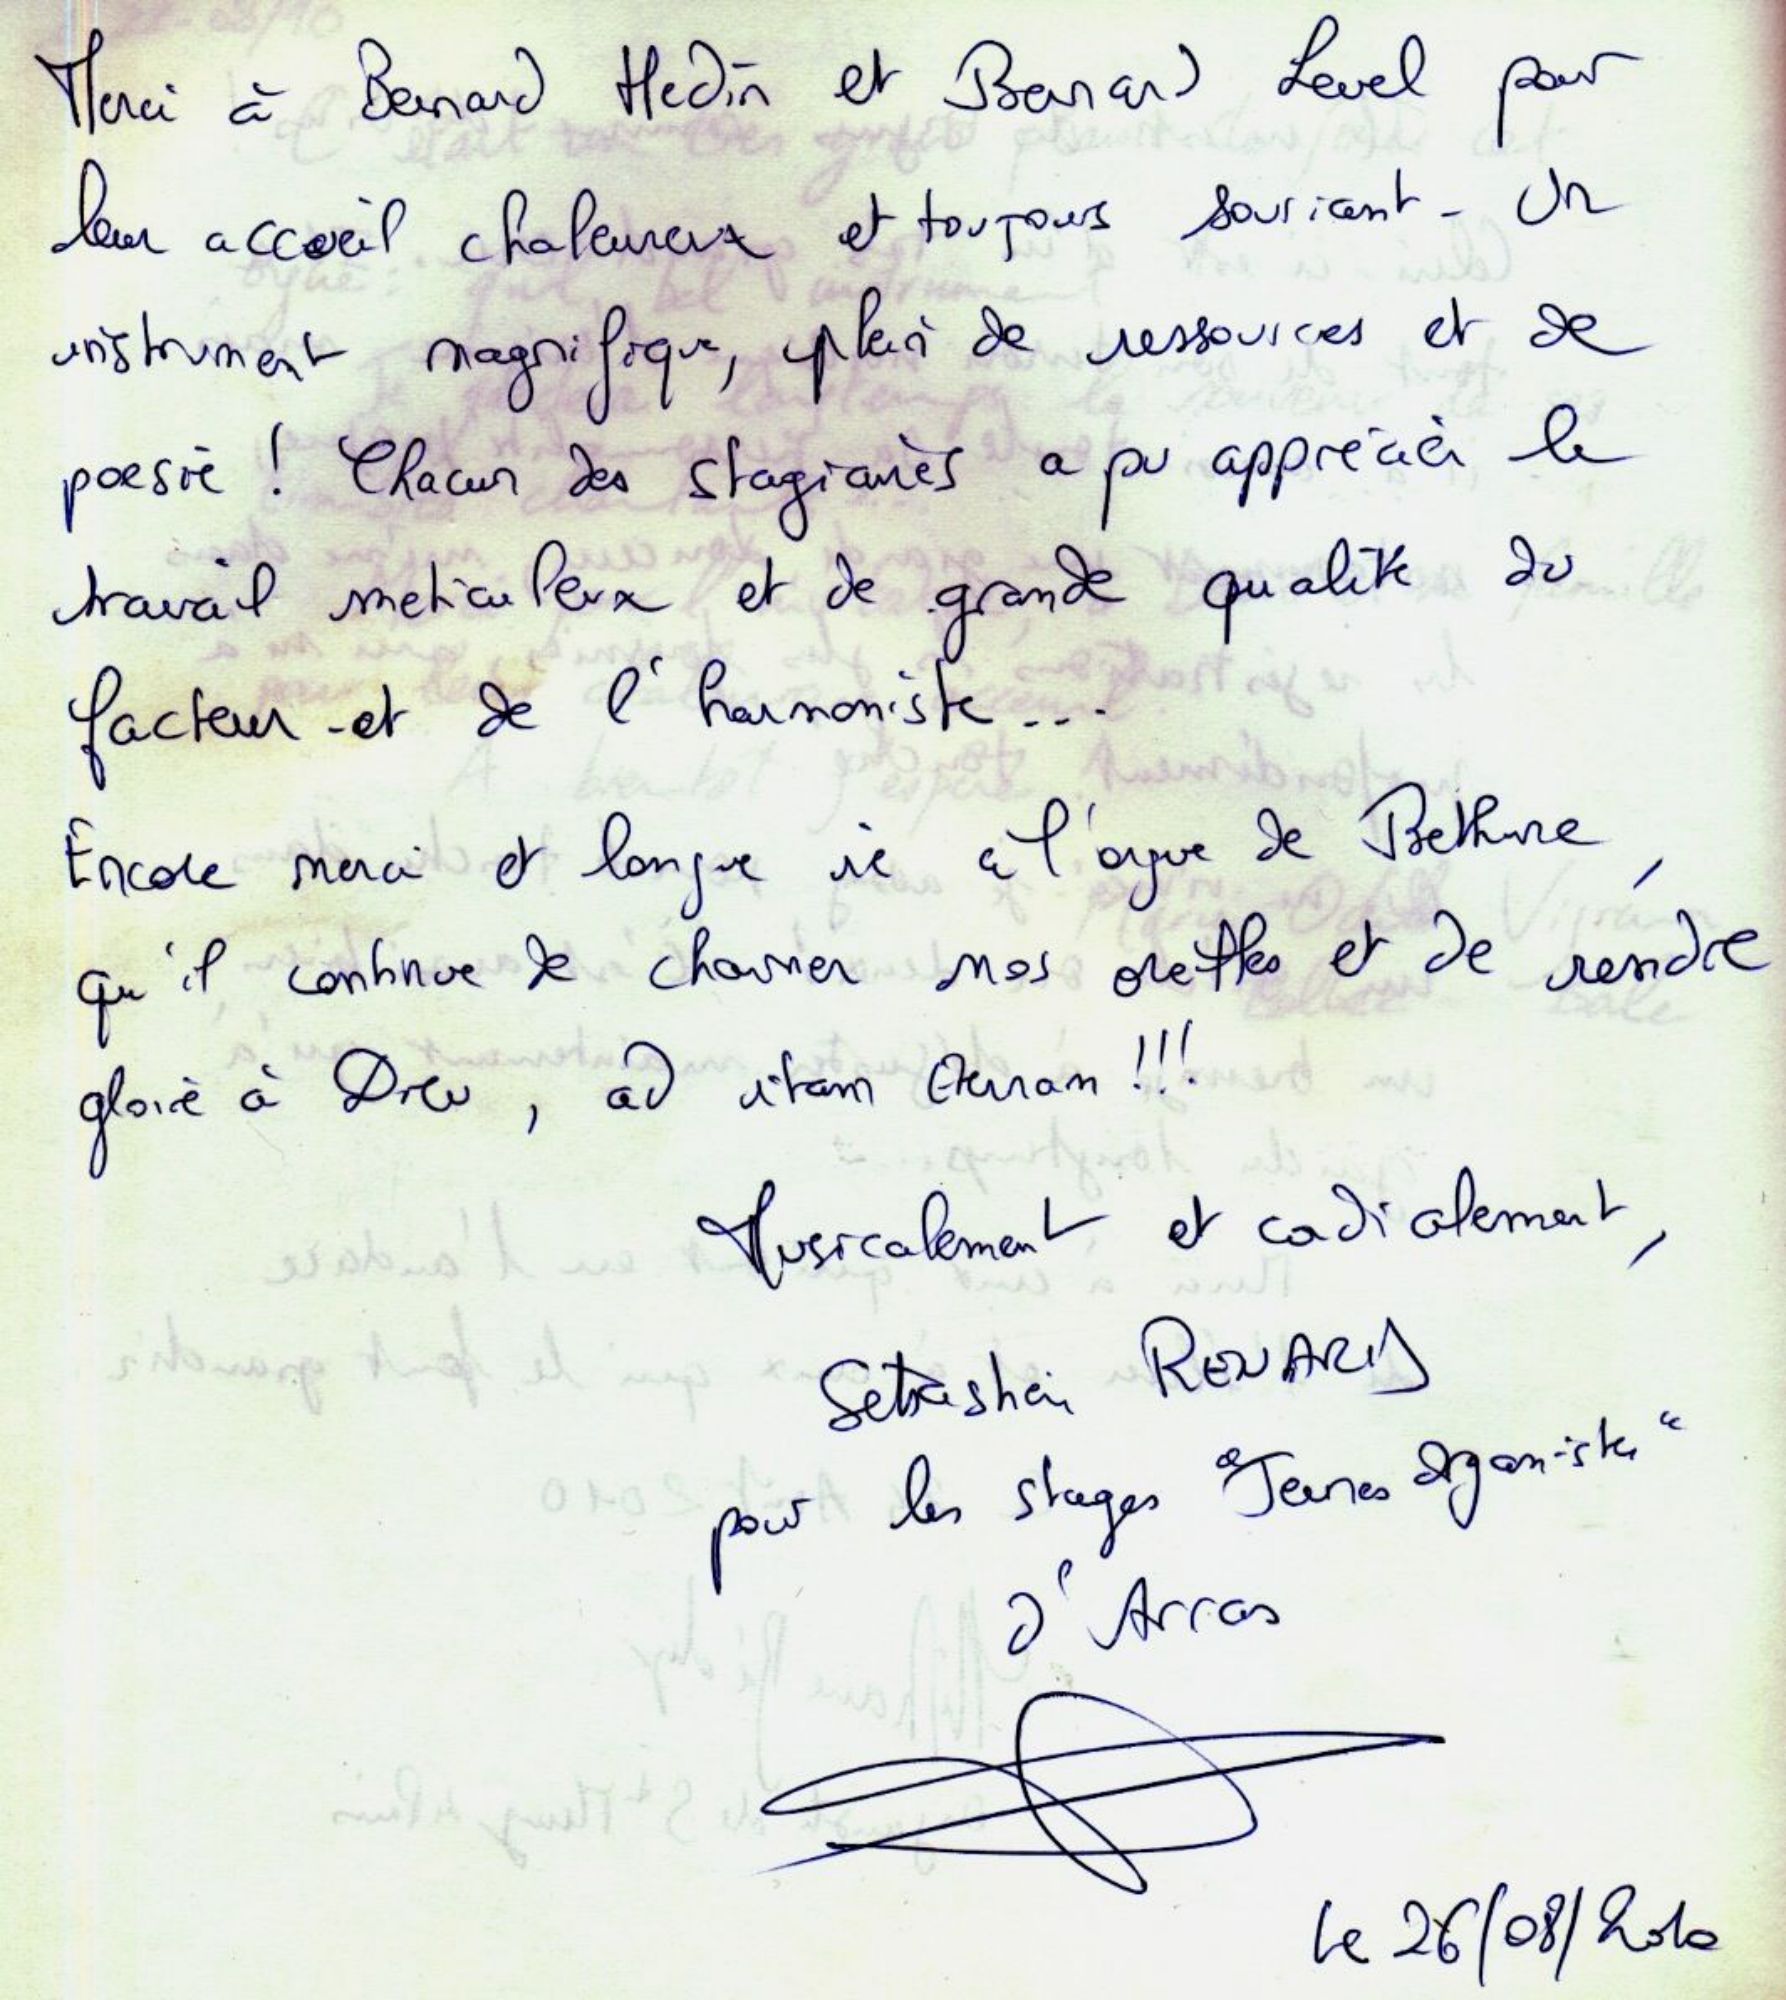 Merci à Bernard Hedin et Bernard Level pour
leur accueil chaleureux et toujours souriant. Un
instrument magnifique, plein de ressources et de
poésie ! Chacun des stagiaires a pu apprécier le
travail méticuleux et de grande qualité du
facteur et de l'harmoniste...
Encore merci et longue vie à l'orgue de Béthune,
qu'il continue de charmer nos oreilles et de rendre
gloire à Dieu, ad vitam eternam !!!
Musicalement et cordialement,
Sébastien RENARD
pour les stages "Jeunes organistes"
d'Arras
Le 26/08/2010